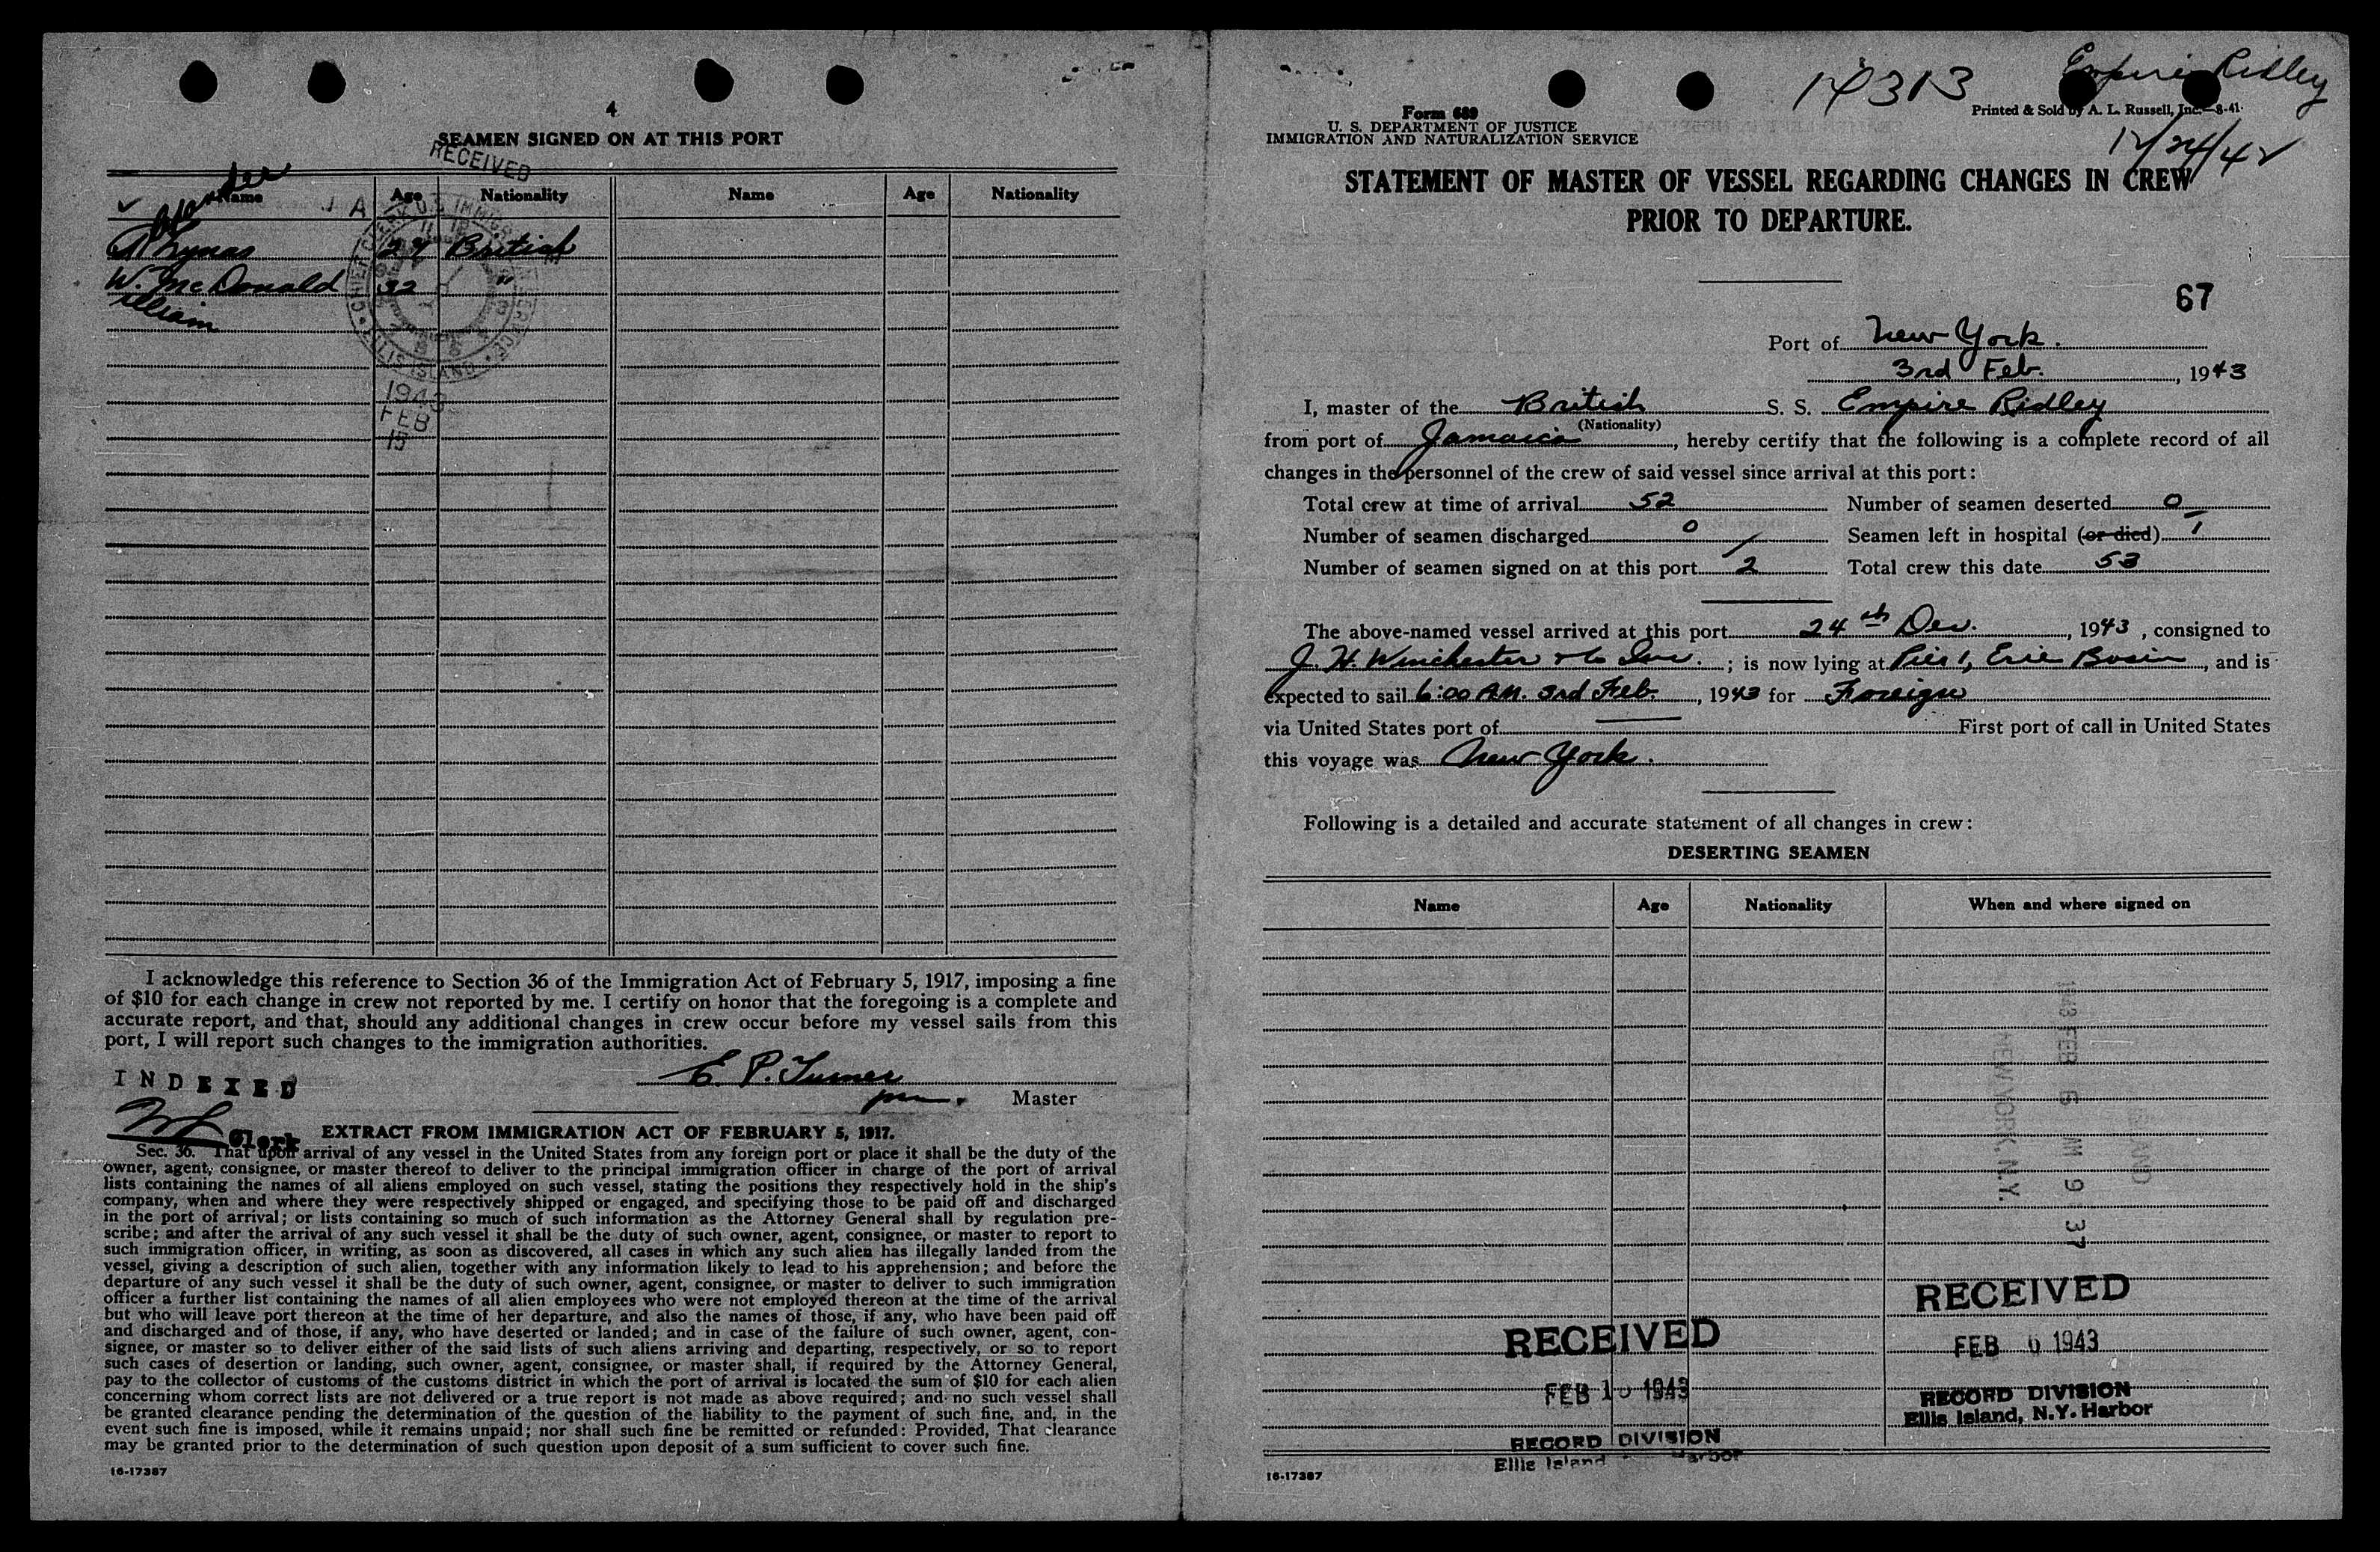 4
SEAMEN SIGNED ON AT THIS PORT
RECEIVED
Name Age Nationality Name Age Nationality
British
W. McDonald 32 "
illiam
CHIEF CLERK U.S. IMMIGRATION SERVICE
ELLIS ISLAND
1943
FEB
15
I acknowledge this reference to Section 36 of the Immigration Act of February 5, 1917, imposing a fine
of $10 for each change in crew not reported by me. I certify on honor that the foregoing is a complete and
accurate report, and that, should any additional changes in crew occur before my vessel sails from this
port, I will report such changes to the immigration authorities.
INDEXED
E. P. Turner
Master
Clerk
EXTRACT FROM IMMIGRATION ACT OF FEBRUARY 5, 1917.
Sec. 36. That upon arrival of any vessel in the United States from any foreign port or place it shall be the duty of the
owner, agent, consignee, or master thereof to deliver to the principal immigration officer in charge of the port of arrival
lists containing the names of all aliens employed on such vessel, stating the positions they respectively hold in the ship's
company, when and where they were respectively shipped or engaged, and specifying those to be paid off and discharged
in the port of arrival; or lists containing so much of such information as the Attorney General shall by regulation pre-
scribe; and after the arrival of any such vessel it shall be the duty of such owner, agent, consignee, or master to report to
such immigration officer, in writing, as soon as discovered, all cases in which any such alien has illegally landed from the
vessel, giving a description of such alien, together with any information likely to lead to his apprehension; and before the
departure of any such vessel it shall be the duty of such owner, agent, consignee, or master to deliver to such immigration
officer a further list containing the names of all alien employees who were not employed thereon at the time of the arrival
but who will leave port thereon at the time of her departure, and also the names of those, if any, who have been paid off
and discharged and of those, if any, who have deserted or landed; and in case of the failure of such owner, agent, con-
signee, or master so to deliver either of the said lists of such aliens arriving and departing, respectively, or so to report
such cases of desertion or landing, such owner, agent, consignee, or master shall, if required by the Attorney General,
pay to the collector of customs of the customs district in which the port of arrival is located the sum of $10 for each alien
concerning whom correct lists are not delivered or a true report is not made as above required; and no such vessel shall
be granted clearance pending the determination of the question of the liability to the payment of such fine, and, in the
event such fine is imposed, while it remains unpaid; nor shall such fine be remitted or refunded: Provided, That clearance
may be granted prior to the determination of such question upon deposit of a sum sufficient to cover such fine.
16-17387
14313 Empire Ridley
Form 689
Printed & Sold by A. L. Russell, Inc.—8-41
U. S. DEPARTMENT OF JUSTICE
IMMIGRATION AND NATURALIZATION SERVICE
12/24/42
STATEMENT OF MASTER OF VESSEL REGARDING CHANGES IN CREW
PRIOR TO DEPARTURE.
67
Port of New York.
3rd Feb., 1943
I, master of the British S. S. Empire Ridley
(Nationality)
from port of Jamaica, hereby certify that the following is a complete record of all
changes in the personnel of the crew of said vessel since arrival at this port:
Total crew at time of arrival 52 Number of seamen deserted 0
Number of seamen discharged 0 Seamen left in hospital (or died) 1
Number of seamen signed on at this port 2 Total crew this date 53
The above-named vessel arrived at this port 24th Dec., 1943, consigned to
J. H. Winchester & Co Inc.; is now lying at Pier 1, Erie Basin, and is
expected to sail 6:00 A.M. 3rd Feb., 1943 for Foreign
via United States port of — First port of call in United States
this voyage was New York.
Following is a detailed and accurate statement of all changes in crew:
DESERTING SEAMEN
Name Age Nationality When and where signed on
1943 FEB 6 AM 9 37
NEW YORK, N.Y.
RECEIVED
FEB 6 1943
RECORD DIVISION
Ellis Island, N.Y. Harbor
RECEIVED
FEB 1 1943
RECORD DIVISION
Ellis Island Harbor
16-17387